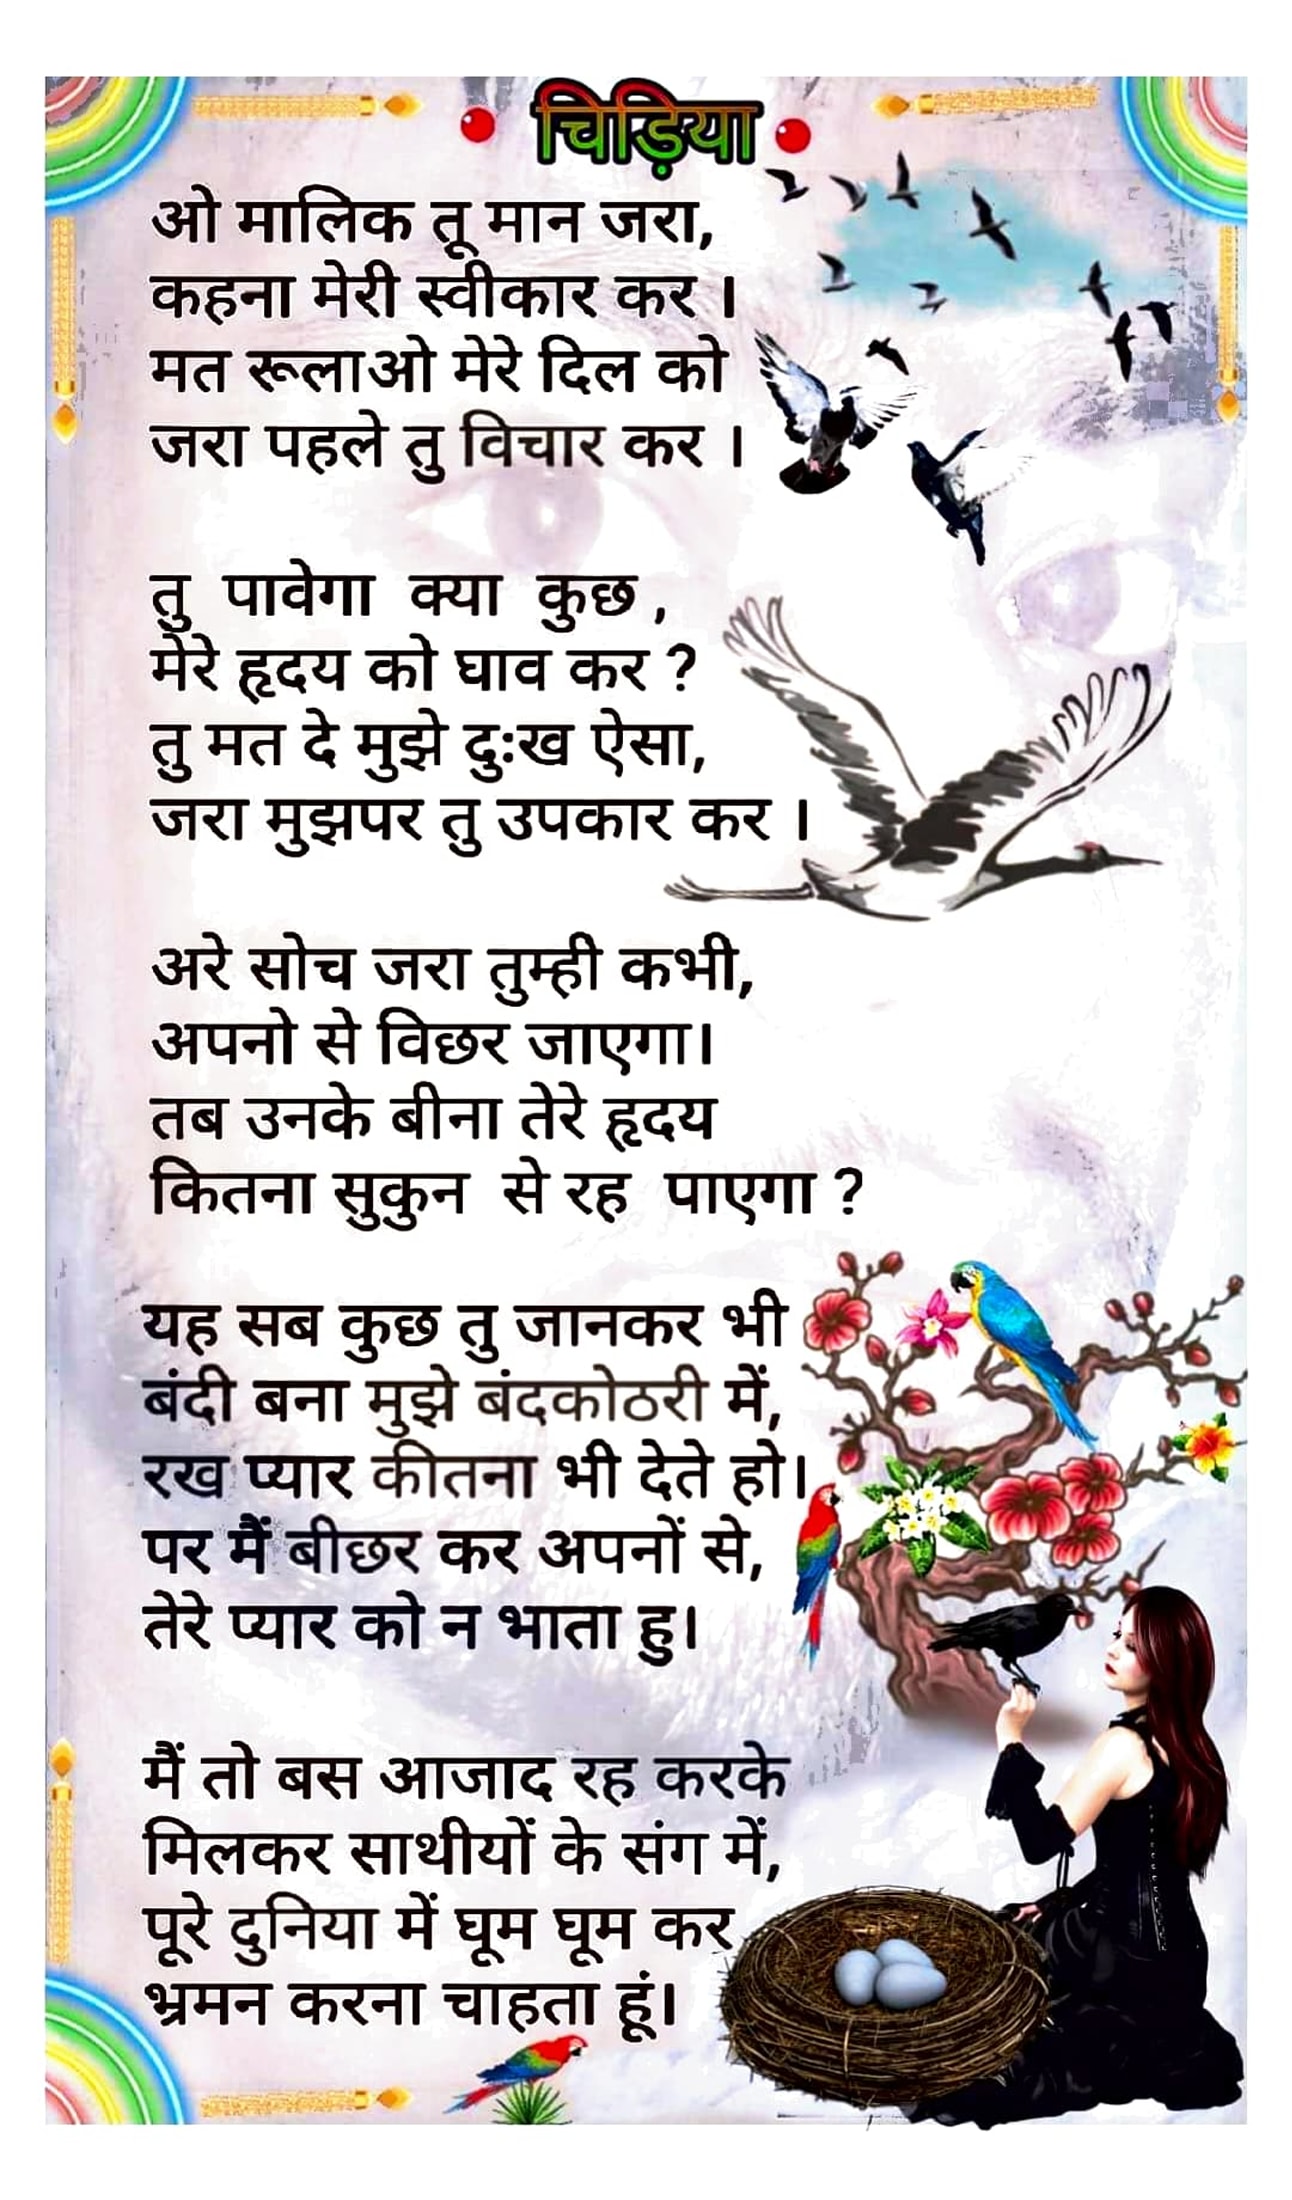 चिड़िया
ओ मालिक तू मान जरा,
कहना मेरी स्वीकार कर ।
मत रूलाओ मेरे दिल को
जरा पहले तु विचार कर ।
तु पावेगा क्या कुछ ,
मेरे हृदय को घाव कर ?
तु मत दे मुझे दुःख ऐसा,
जरा मुझपर तु उपकार कर ।
अरे सोच जरा तुम्ही कभी,
अपनो से विछर जाएगा।
तब उनके बीना तेरे हृदय
कितना सुकुन से रह पाएगा ?
यह सब कुछ तु जानकर भी
बंदी बना मुझे बंदकोठरी में,
रख प्यार कीतना भी देते हो।
पर मैं बीछर कर अपनों से,
तेरे प्यार को न भाता हु।
मैं तो बस आजाद रह करके
मिलकर साथीयों के संग में,
पूरे दुनिया में घूम घूम कर
भ्रमन करना चाहता हूं।